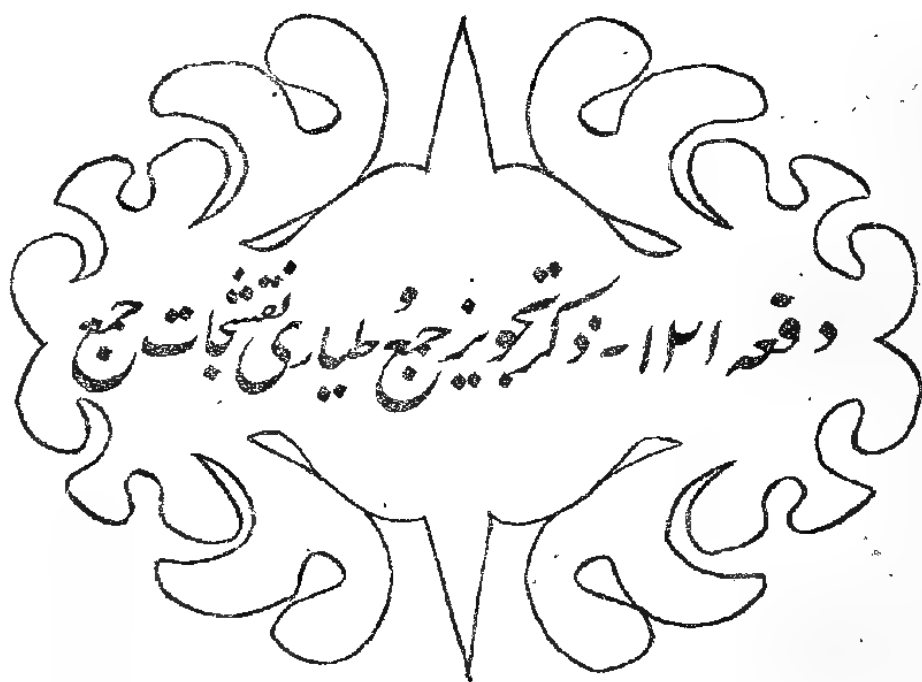 دفعہ ۱۲۱ - ذکر تجویز جمع و طیاری نقشجات جمع